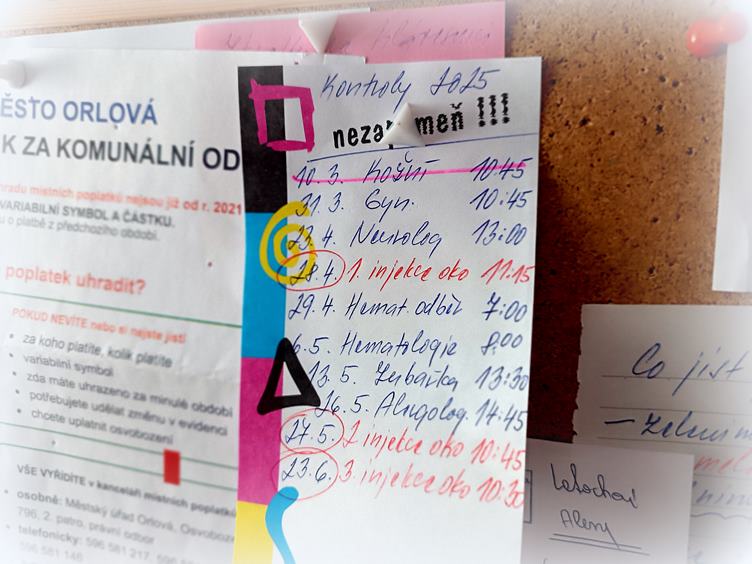 ĚSTO ORLOVÁ
K ZA KOMUNÁLNÍ OD
hradu místních poplatků nejsou již od r. 2021
VARIABILNÍ SYMBOL A ČÁSTKU.
o platbě z předchozího období.
poplatek uhradit?
POKUD NEVÍTE nebo si nejste jistí
• za koho platíte, kolik platíte
• variabilní symbol
• zda máte uhrazeno za minulé období
• potřebujete udělat změnu v evidenci
• chcete uplatnit osvobození
VŠE VYŘÍDÍTE v kanceláři místních poplatků
• osobně: Městský úřad Orlová, Osvoboze
796, 2. patro, právní odbor
• telefonicky: 596 581 217, 596
596 581 146
Kontroly 2025
nezapomeň !!!
10. 3. Kožní 10:45
31. 3. Gyn. 10:45
23. 4. Neurolog 13:00
28. 4. 1. injekce oko 11:15
29. 4. Hemat. odběr 7:00
6. 5. Hematologie 8:00
13. 5. Zubařka 13:30
26. 5. Alergolog. 14:45
27. 5. 2 injekce oko 10:45
23. 6. 3. injekce oko 10:30
Co jíst
Letochoví
Aleny